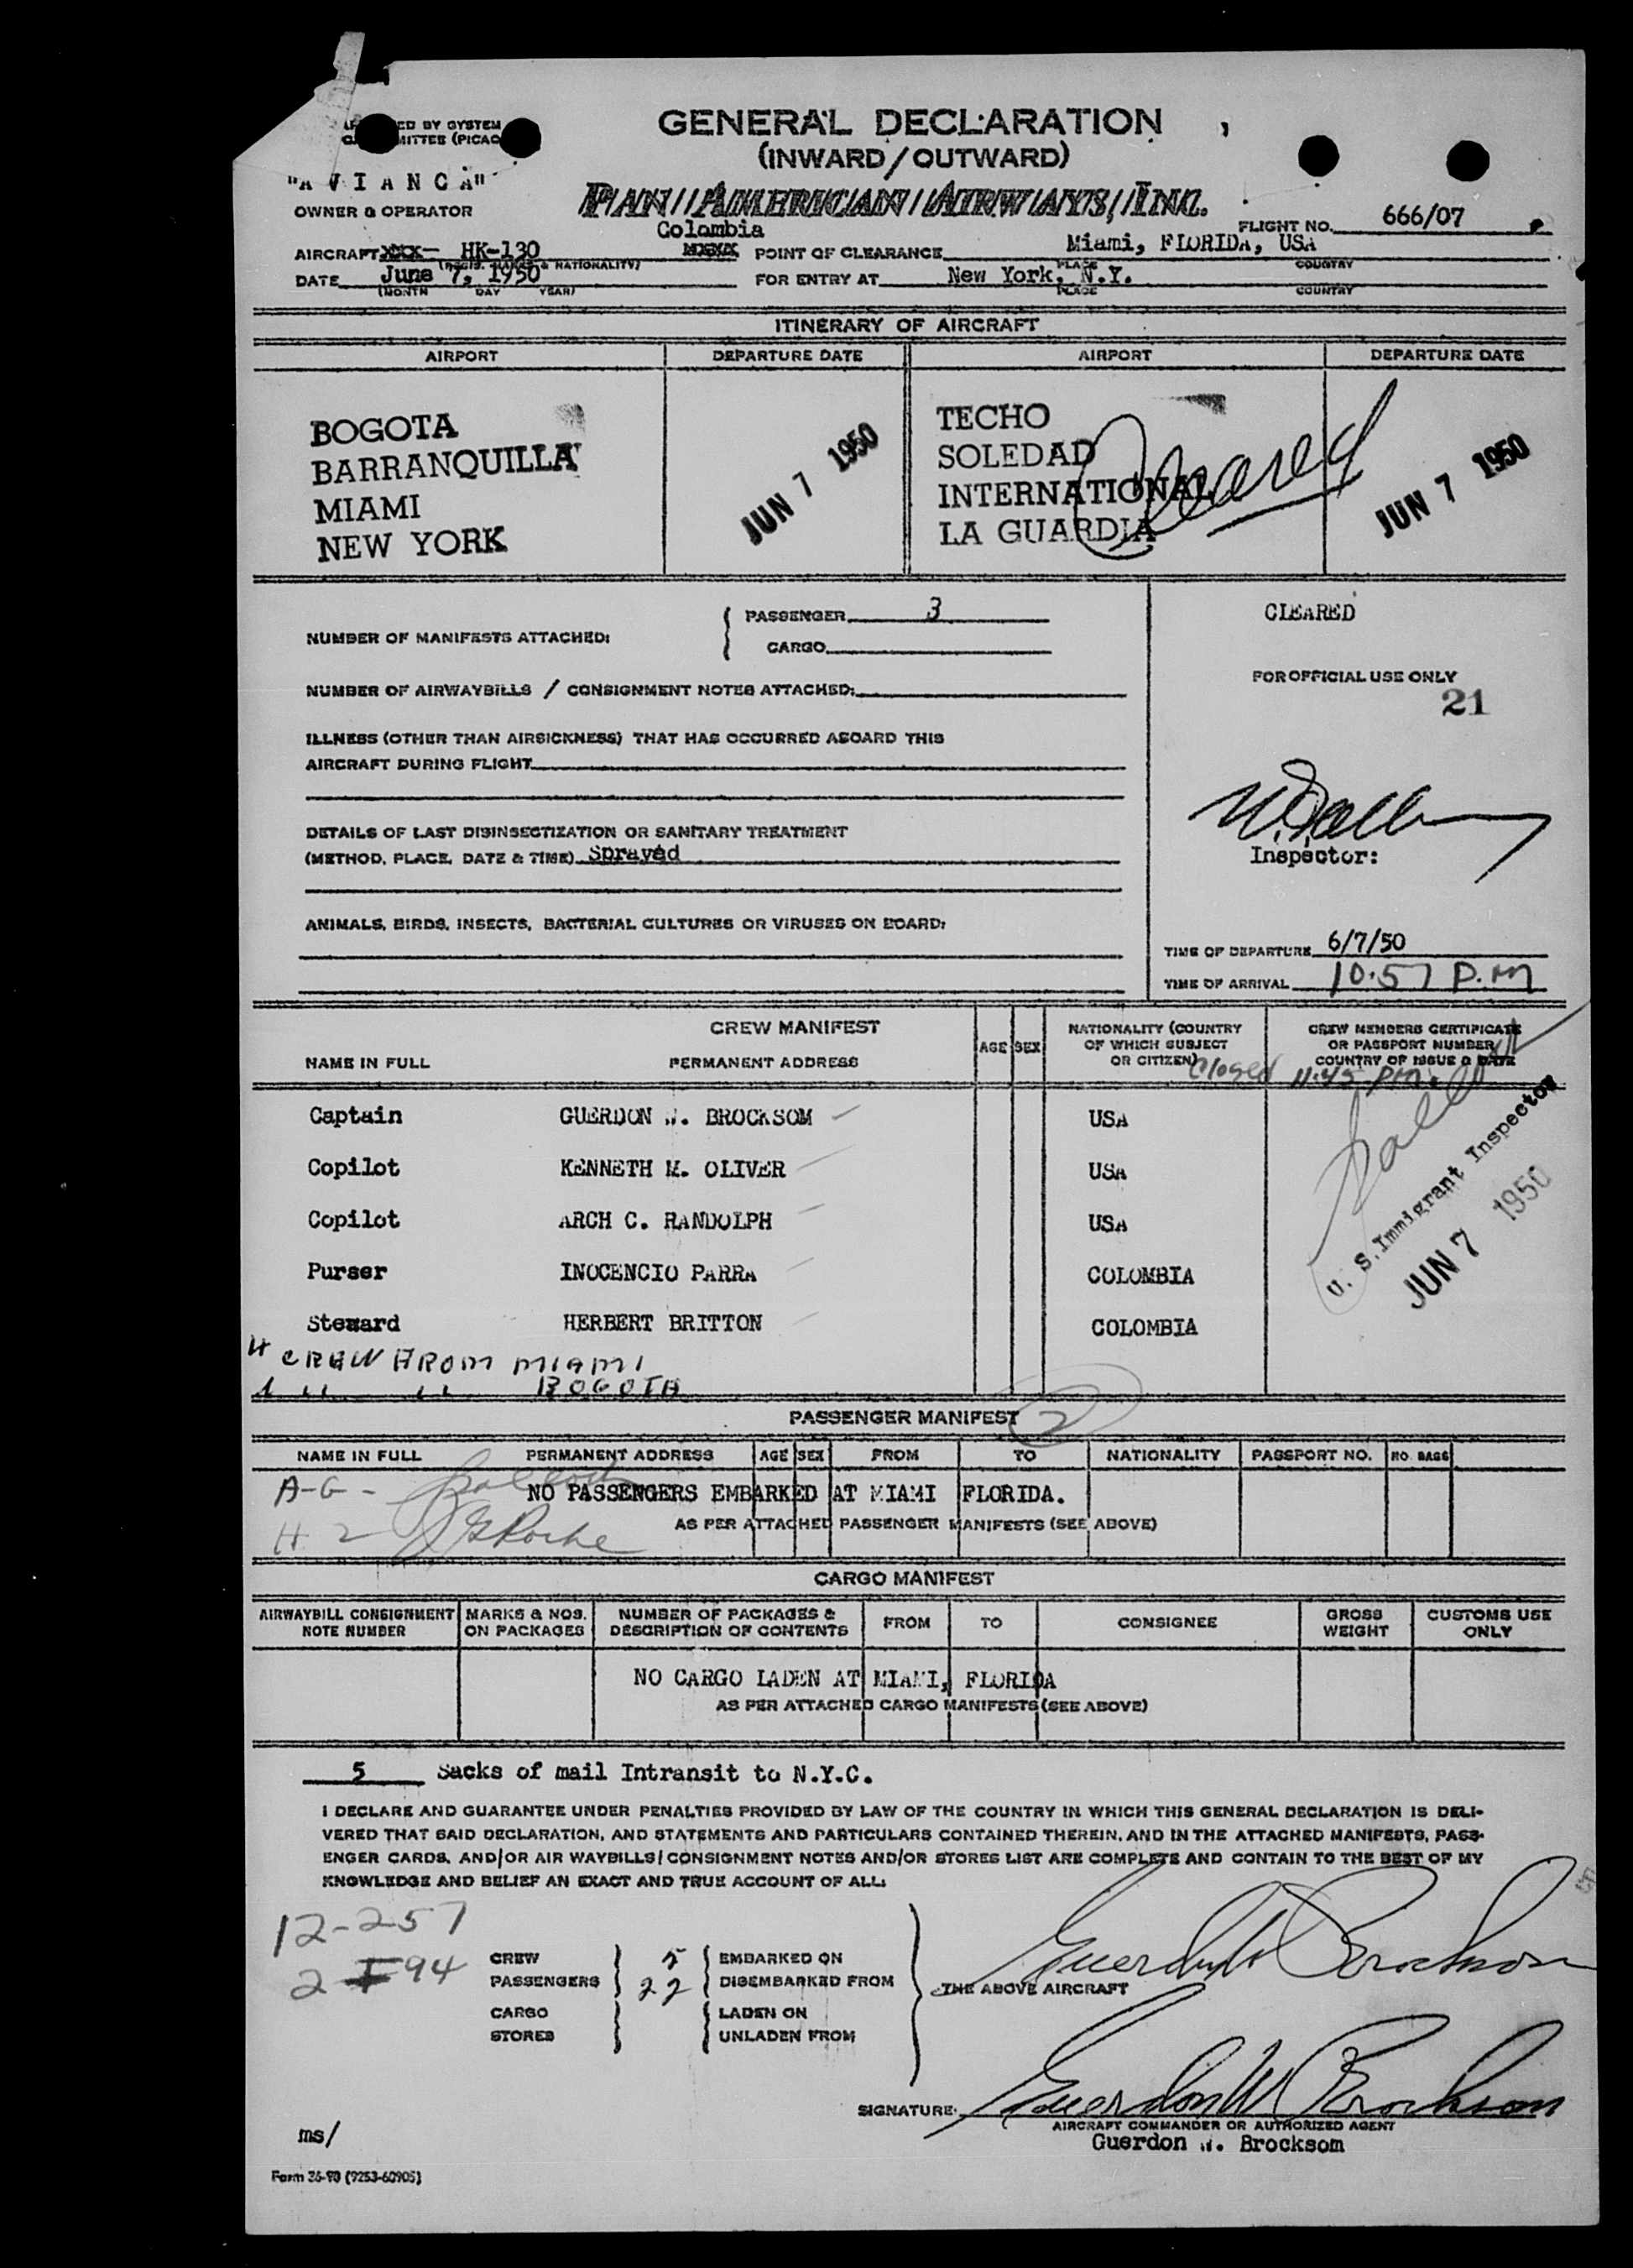 GENERAL DECLARATION
(INWARD/OUTWARD)
"AVIANCA"
OWNER & OPERATOR
PAN AMERICAN AIRWAYS, INC.
FLIGHT NO. 666/07
Colombia
AIRCRAFT XXX- HK-130
POINT OF CLEARANCE Miami, FLORIDA, USA
(REGIS. MARKS & NATIONALITY)
PLACE COUNTRY
DATE June 7, 1950
FOR ENTRY AT New York, N.Y.
(MONTH DAY YEAR)
PLACE COUNTRY
ITINERARY OF AIRCRAFT
AIRPORT DEPARTURE DATE AIRPORT DEPARTURE DATE
BOGOTA TECHO
BARRANQUILLA SOLEDAD
MIAMI INTERNATIONAL
NEW YORK LA GUARDIA
JUN 7 1950 Cleared JUN 7 1950
NUMBER OF MANIFESTS ATTACHED:
PASSENGER 3
CARGO
CLEARED
FOR OFFICIAL USE ONLY
21
NUMBER OF AIRWAYBILLS / CONSIGNMENT NOTES ATTACHED:
ILLNESS (OTHER THAN AIRSICKNESS) THAT HAS OCCURRED ABOARD THIS
AIRCRAFT DURING FLIGHT
DETAILS OF LAST DISINSECTIZATION OR SANITARY TREATMENT
(METHOD, PLACE, DATE & TIME) Sprayed
Inspector:
ANIMALS, BIRDS, INSECTS, BACTERIAL CULTURES OR VIRUSES ON BOARD:
TIME OF DEPARTURE 6/7/50
TIME OF ARRIVAL 10:57 P.M
CREW MANIFEST
NAME IN FULL PERMANENT ADDRESS AGE SEX
NATIONALITY (COUNTRY
OF WHICH SUBJECT
OR CITIZEN)
CREW MEMBERS CERTIFICATE
OR PASSPORT NUMBER
COUNTRY OF ISSUE & DATE
Closed 11:45 PM
Captain GUERDON W. BROCKSOM USA
Copilot KENNETH M. OLIVER USA
Copilot ARCH C. RANDOLPH USA
Purser INOCENCIO PARRA COLOMBIA
Steward HERBERT BRITTON COLOMBIA
U. S. Immigrant Inspector
JUN 7 1950
4 CREW FROM MIAMI
1 " " BOGOTA
PASSENGER MANIFEST
2
NAME IN FULL PERMANENT ADDRESS AGE SEX FROM TO NATIONALITY PASSPORT NO. NO. BAGS
A-G -
NO PASSENGERS EMBARKED AT MIAMI FLORIDA.
AS PER ATTACHED PASSENGER MANIFESTS (SEE ABOVE)
CARGO MANIFEST
AIRWAYBILL CONSIGNMENT NOTE NUMBER
MARKS & NOS. ON PACKAGES
NUMBER OF PACKAGES & DESCRIPTION OF CONTENTS
FROM TO CONSIGNEE
GROSS WEIGHT
CUSTOMS USE ONLY
NO CARGO LADEN AT MIAMI, FLORIDA
AS PER ATTACHED CARGO MANIFESTS (SEE ABOVE)
5 Sacks of mail Intransit to N.Y.C.
I DECLARE AND GUARANTEE UNDER PENALTIES PROVIDED BY LAW OF THE COUNTRY IN WHICH THIS GENERAL DECLARATION IS DELI-
VERED THAT SAID DECLARATION, AND STATEMENTS AND PARTICULARS CONTAINED THEREIN, AND IN THE ATTACHED MANIFESTS, PASS-
ENGER CARDS, AND/OR AIR WAYBILLS/CONSIGNMENT NOTES AND/OR STORES LIST ARE COMPLETE AND CONTAIN TO THE BEST OF MY
KNOWLEDGE AND BELIEF AN EXACT AND TRUE ACCOUNT OF ALL:
12-257
94
CREW 5 EMBARKED ON
PASSENGERS 22 DISEMBARKED FROM
CARGO LADEN ON
STORES UNLADEN FROM
THE ABOVE AIRCRAFT
Guerdon W Brocksom
SIGNATURE. Guerdon W Brocksom
AIRCRAFT COMMANDER OR AUTHORIZED AGENT
Guerdon W. Brocksom
ms/
Form 36-90 (9253-60905)